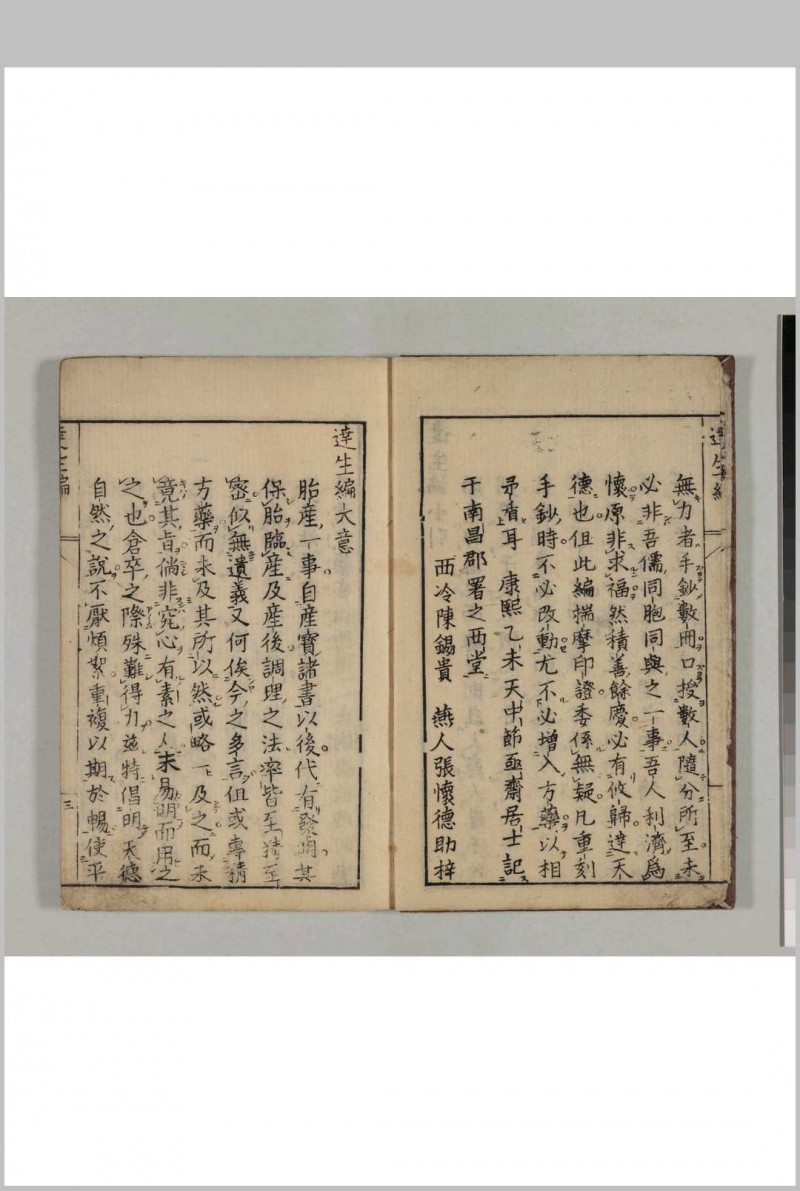 達生編
無力者手鈔數冊口授數人隨分所至未
必非吾儒同胞同與之一事吾人利濟爲
懷原非求福然積善餘慶必有攸歸達天
德也但此編揣摩印證委係無疑凡重刻
手鈔時不必改動尤不必增入方藥以相
矛盾耳　康熙乙未天中節亟齋居士記
于南昌郡署之西堂
西泠陳錫貴　燕人張懷德助梓
達生編大意
胎産一事自産寶諸書以後代有發明其
保胎臨産及産後調理之法率皆至精至
密似無遺義又何俟今之多言但或專精
方藥而未及其所以然或略一及之而未
竟其旨倘非究心有素之人未易明而用之
之也倉卒之際殊難得力茲特倡明天德
自然之說不厭煩絮重複以期於暢使平
達生編
三